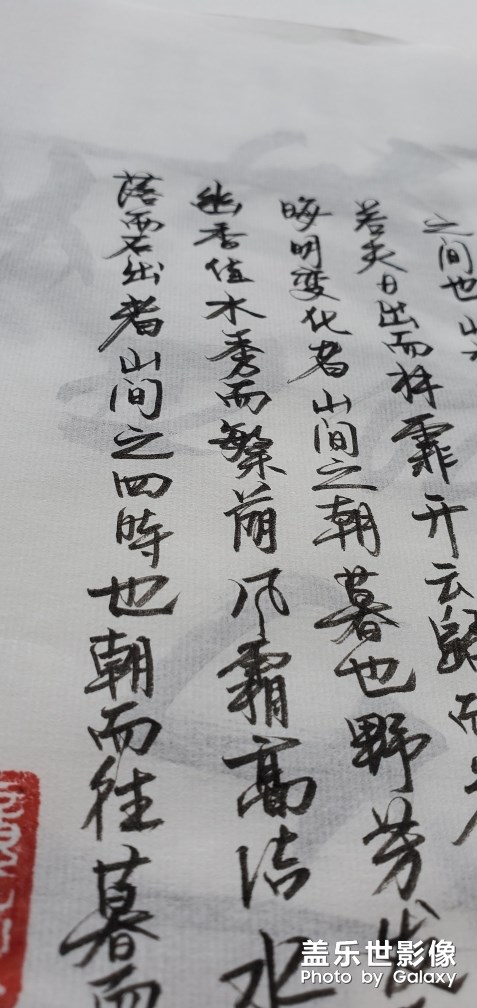 之间也山
若夫日出而林霏开云归而
晦明变化者山间之朝暮也野芳发
幽香佳木秀而繁荫风霜高洁水
落而石出者山间之四时也朝而往暮而
盖乐世影像
Photo by Galaxy